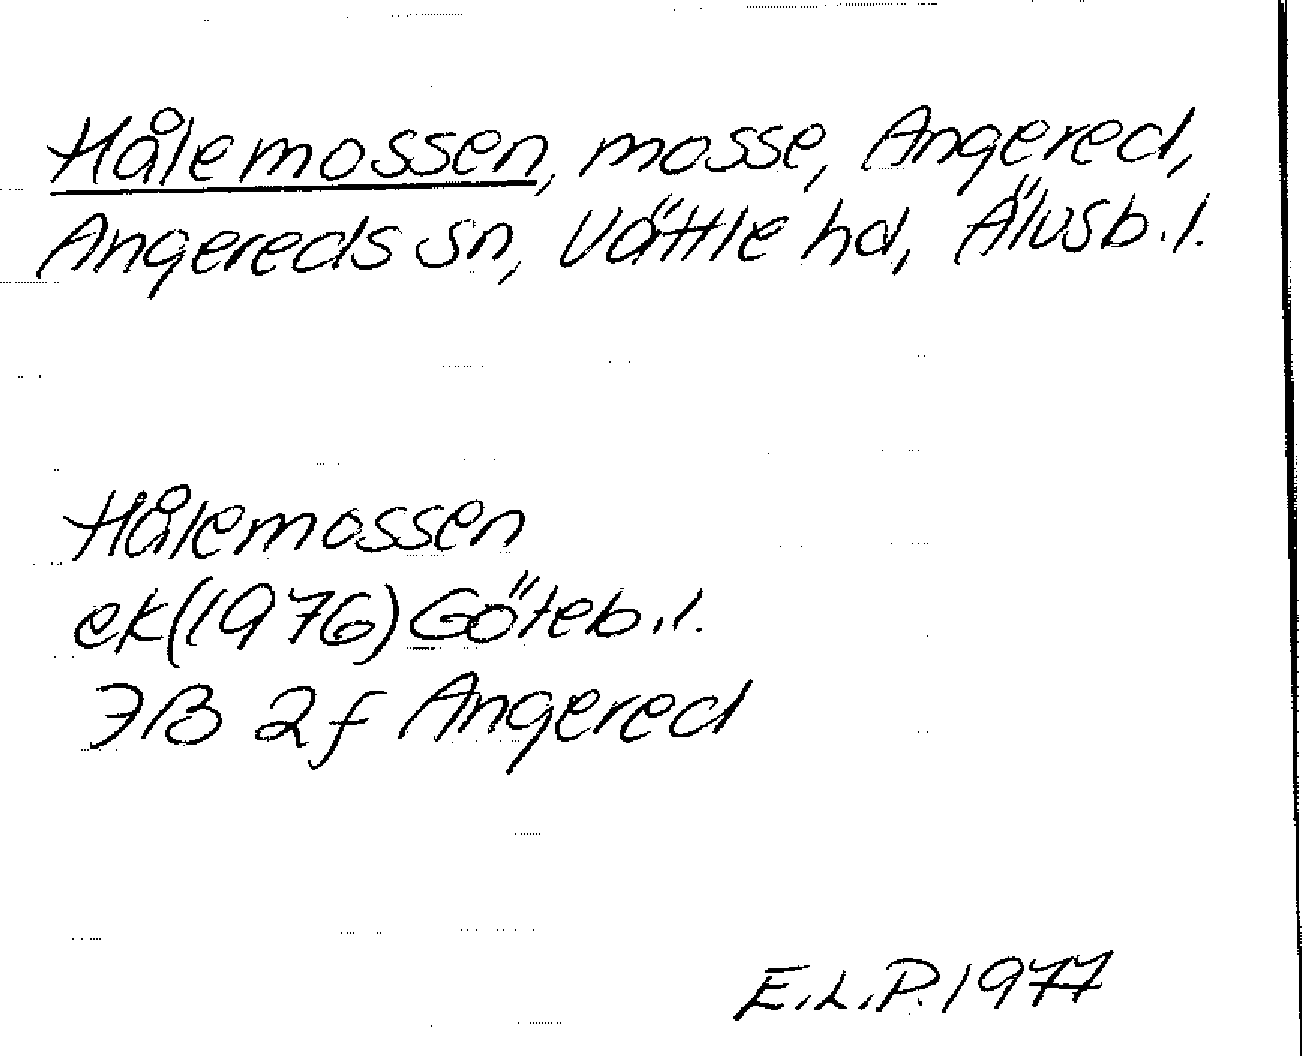 Hålemossen, mosse, Angered,
Angereds sn, Vättle hd, Älvsb.l.
Hålemossen
ek(1976)Göteb.l.
7B 2f Angered
E.L.P.1977